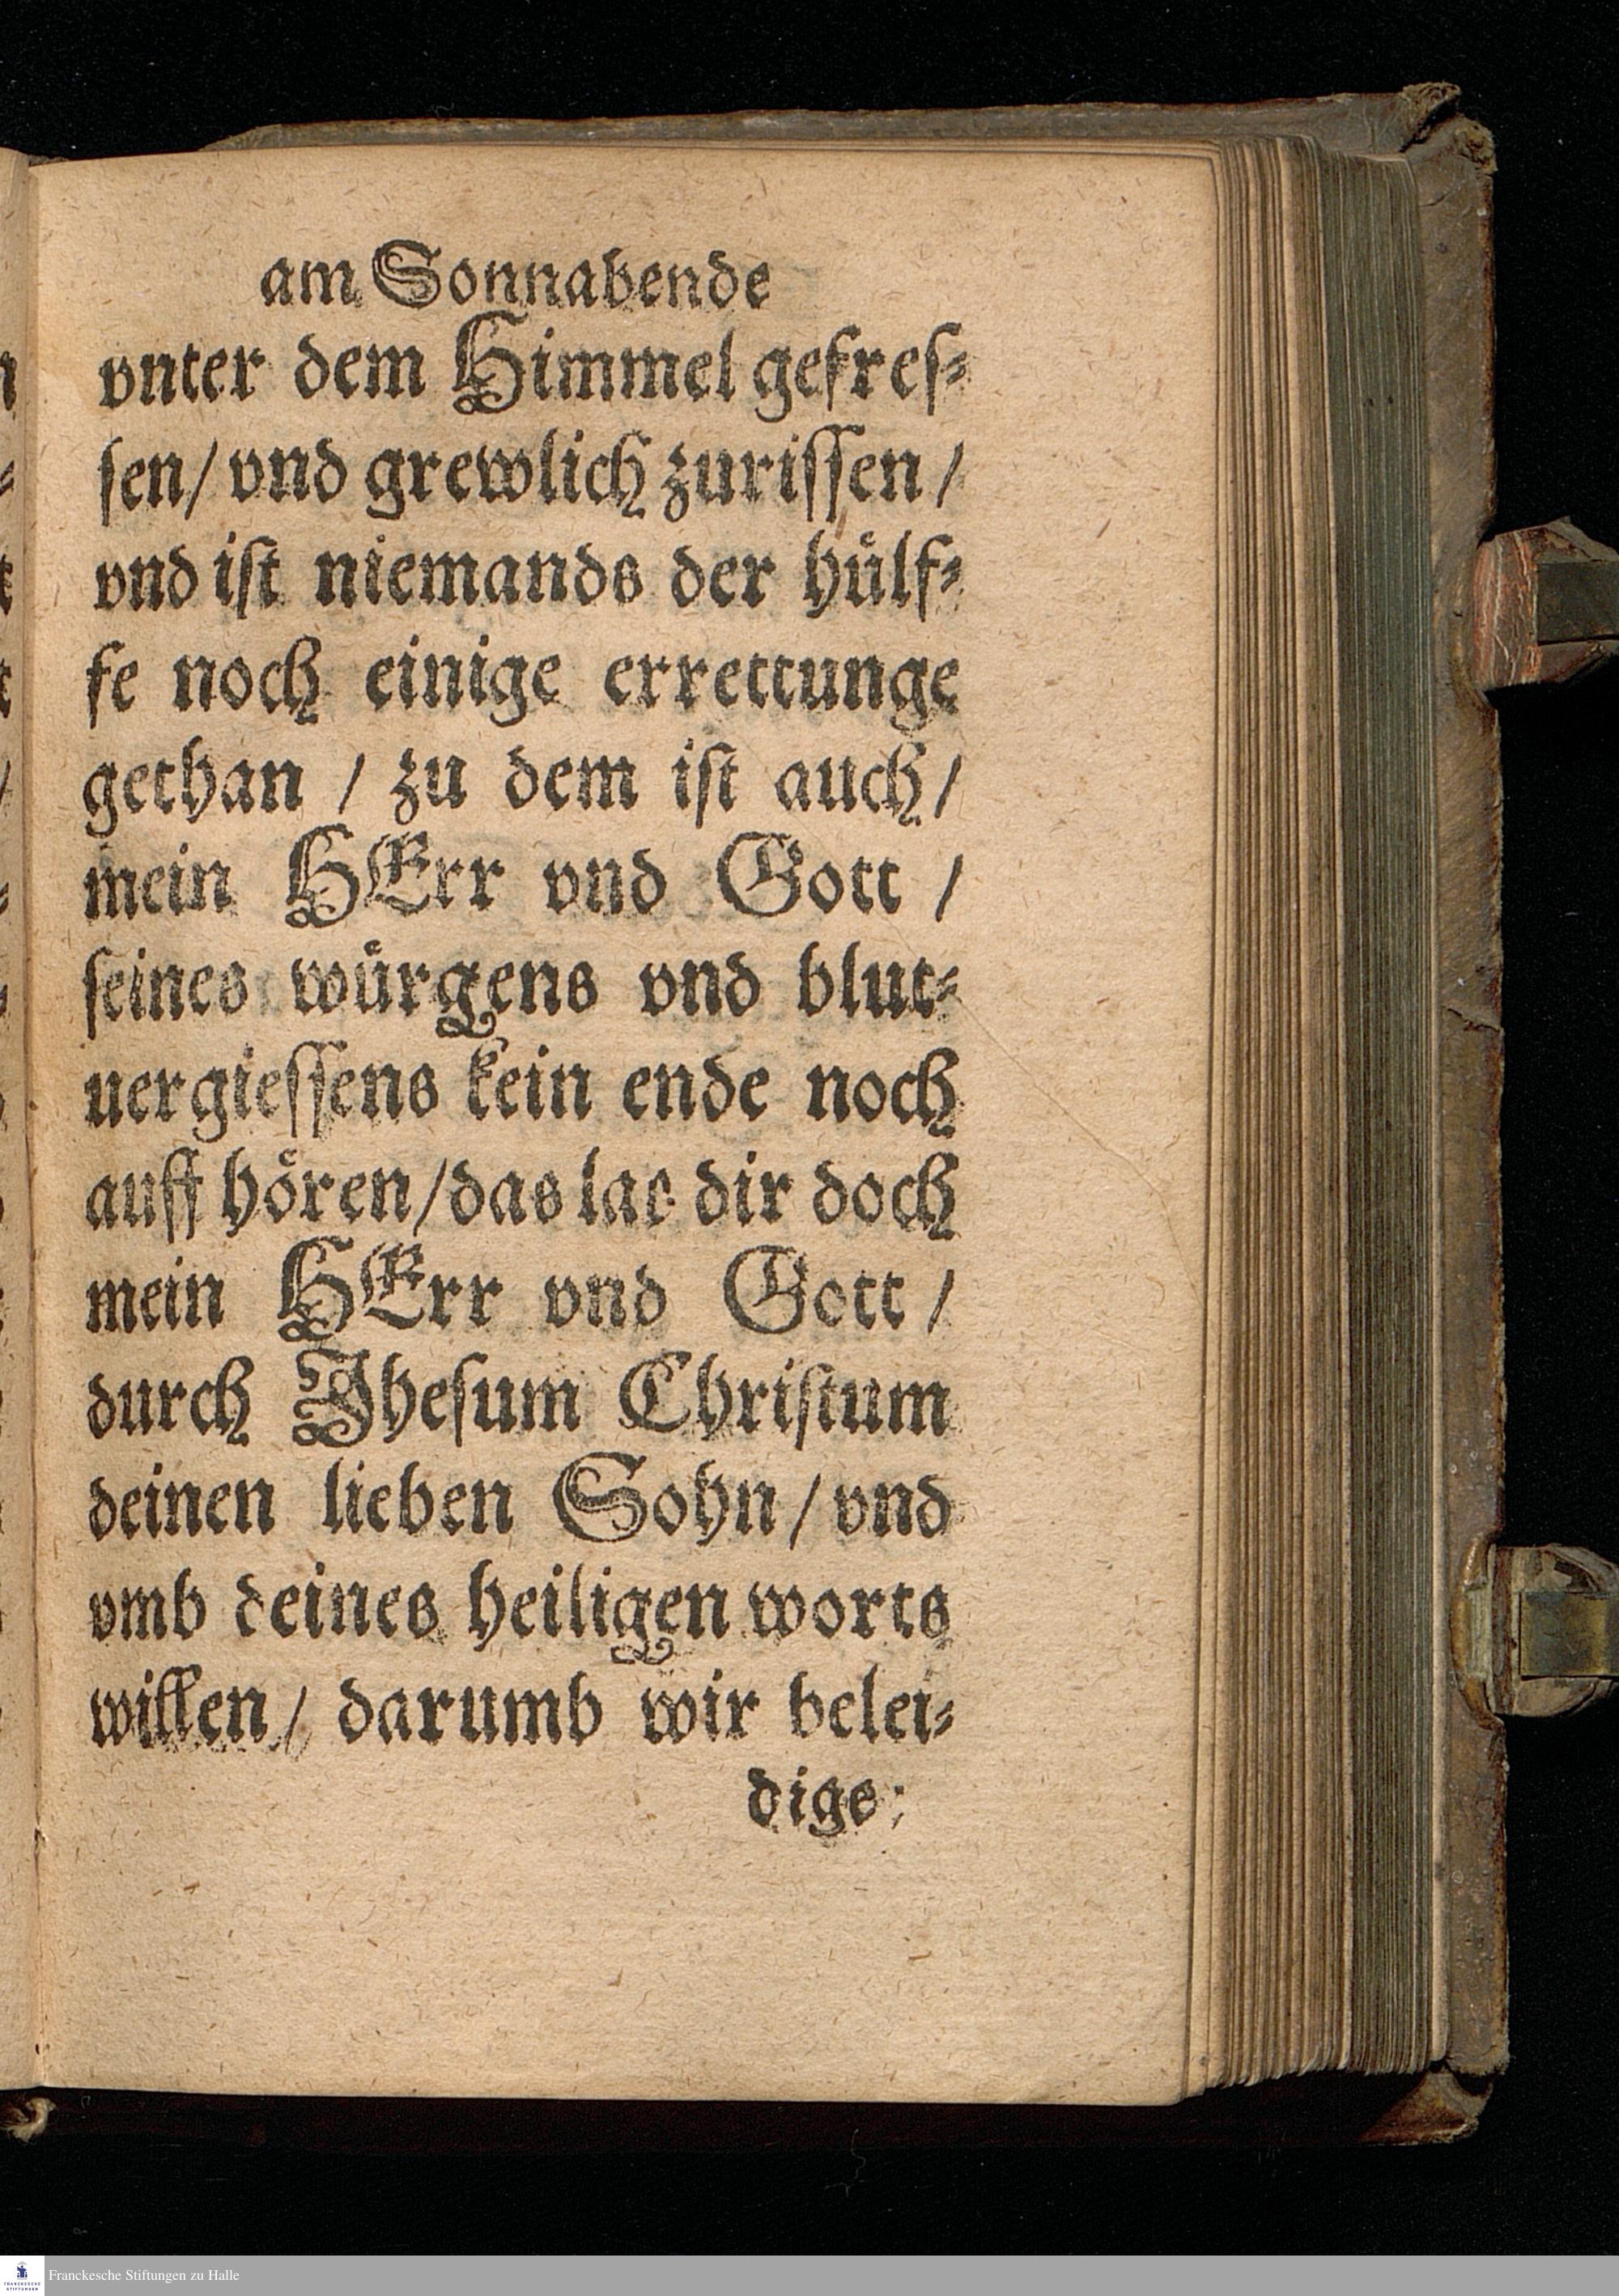 am Sonnabende
vnter dem Himmel gefreſ⸗
ſen/ vnd grewlich zuriſſen /
vnd iſt niemands der huͤlf⸗
fe noch einige errettunge
gethan / zu dem iſt auch/
mein HErr vnd Gott /
ſeines wuͤrgens vnd blut⸗
uergieſſens kein ende noch
auff hoͤren/das lac dir doch
mein HErr vnd Gott /
durch Jheſum Chriſtum
deinen lieben Sohn / vnd
vmb deines heiligen worts
willen / darumb wir belei⸗
dige:
Franckesche Stiftungen zu Halle
FRANCKESCHE
STIFTUNGEN